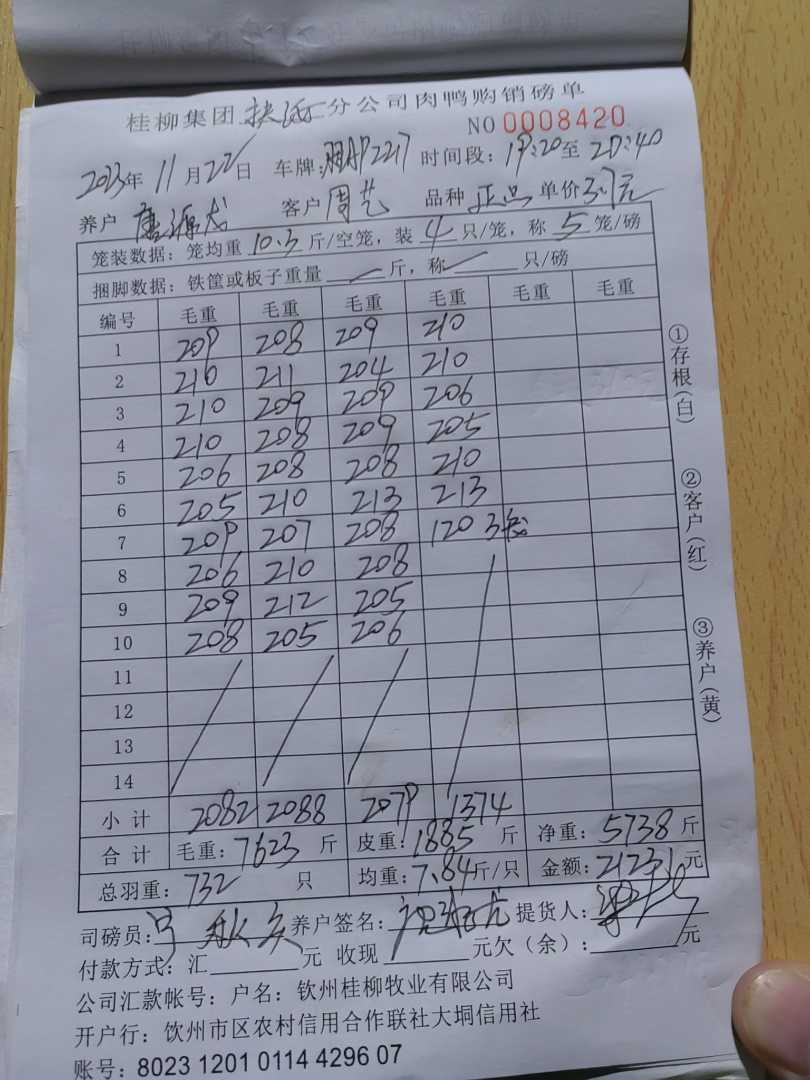 桂柳集团 分公司肉鸭购销磅单
NO 0008420
2023年 11月22日 车牌: AP2217 时间段: 19:20至 20:40
养户 唐源龙 客户 周艺 品种 正品 单价3.7元
笼装数据: 笼均重 10.3 斤/空笼, 装 4 只/笼, 称 5 笼/磅
捆脚数据: 铁筐或板子重量 斤, 称 只/磅
编号 毛重 毛重 毛重 毛重 毛重 毛重
1 209 208 209 210
2 210 211 204 210
3 210 209 209 206
4 210 208 209 205
5 206 208 208 210
6 205 210 213 213
7 209 207 208 120 3笼
8 206 210 208
9 209 212 205
10 208 205 206
11
12
13
14
小计 2082 2088 2079 1374
合计 毛重: 7623 斤 皮重: 1885 斤 净重: 5738 斤
总羽重: 732 只 均重: 7.84斤/只 金额: 21231元
司磅员: 养户签名: 提货人:
付款方式: 汇 元 收现 元欠(余): 元
公司汇款帐号: 户名: 钦州桂柳牧业有限公司
开户行: 饮州市区农村信用合作联社大垌信用社
账号: 8023 1201 0114 4296 07
①存根(白)
②客户(红)
③养户(黄)